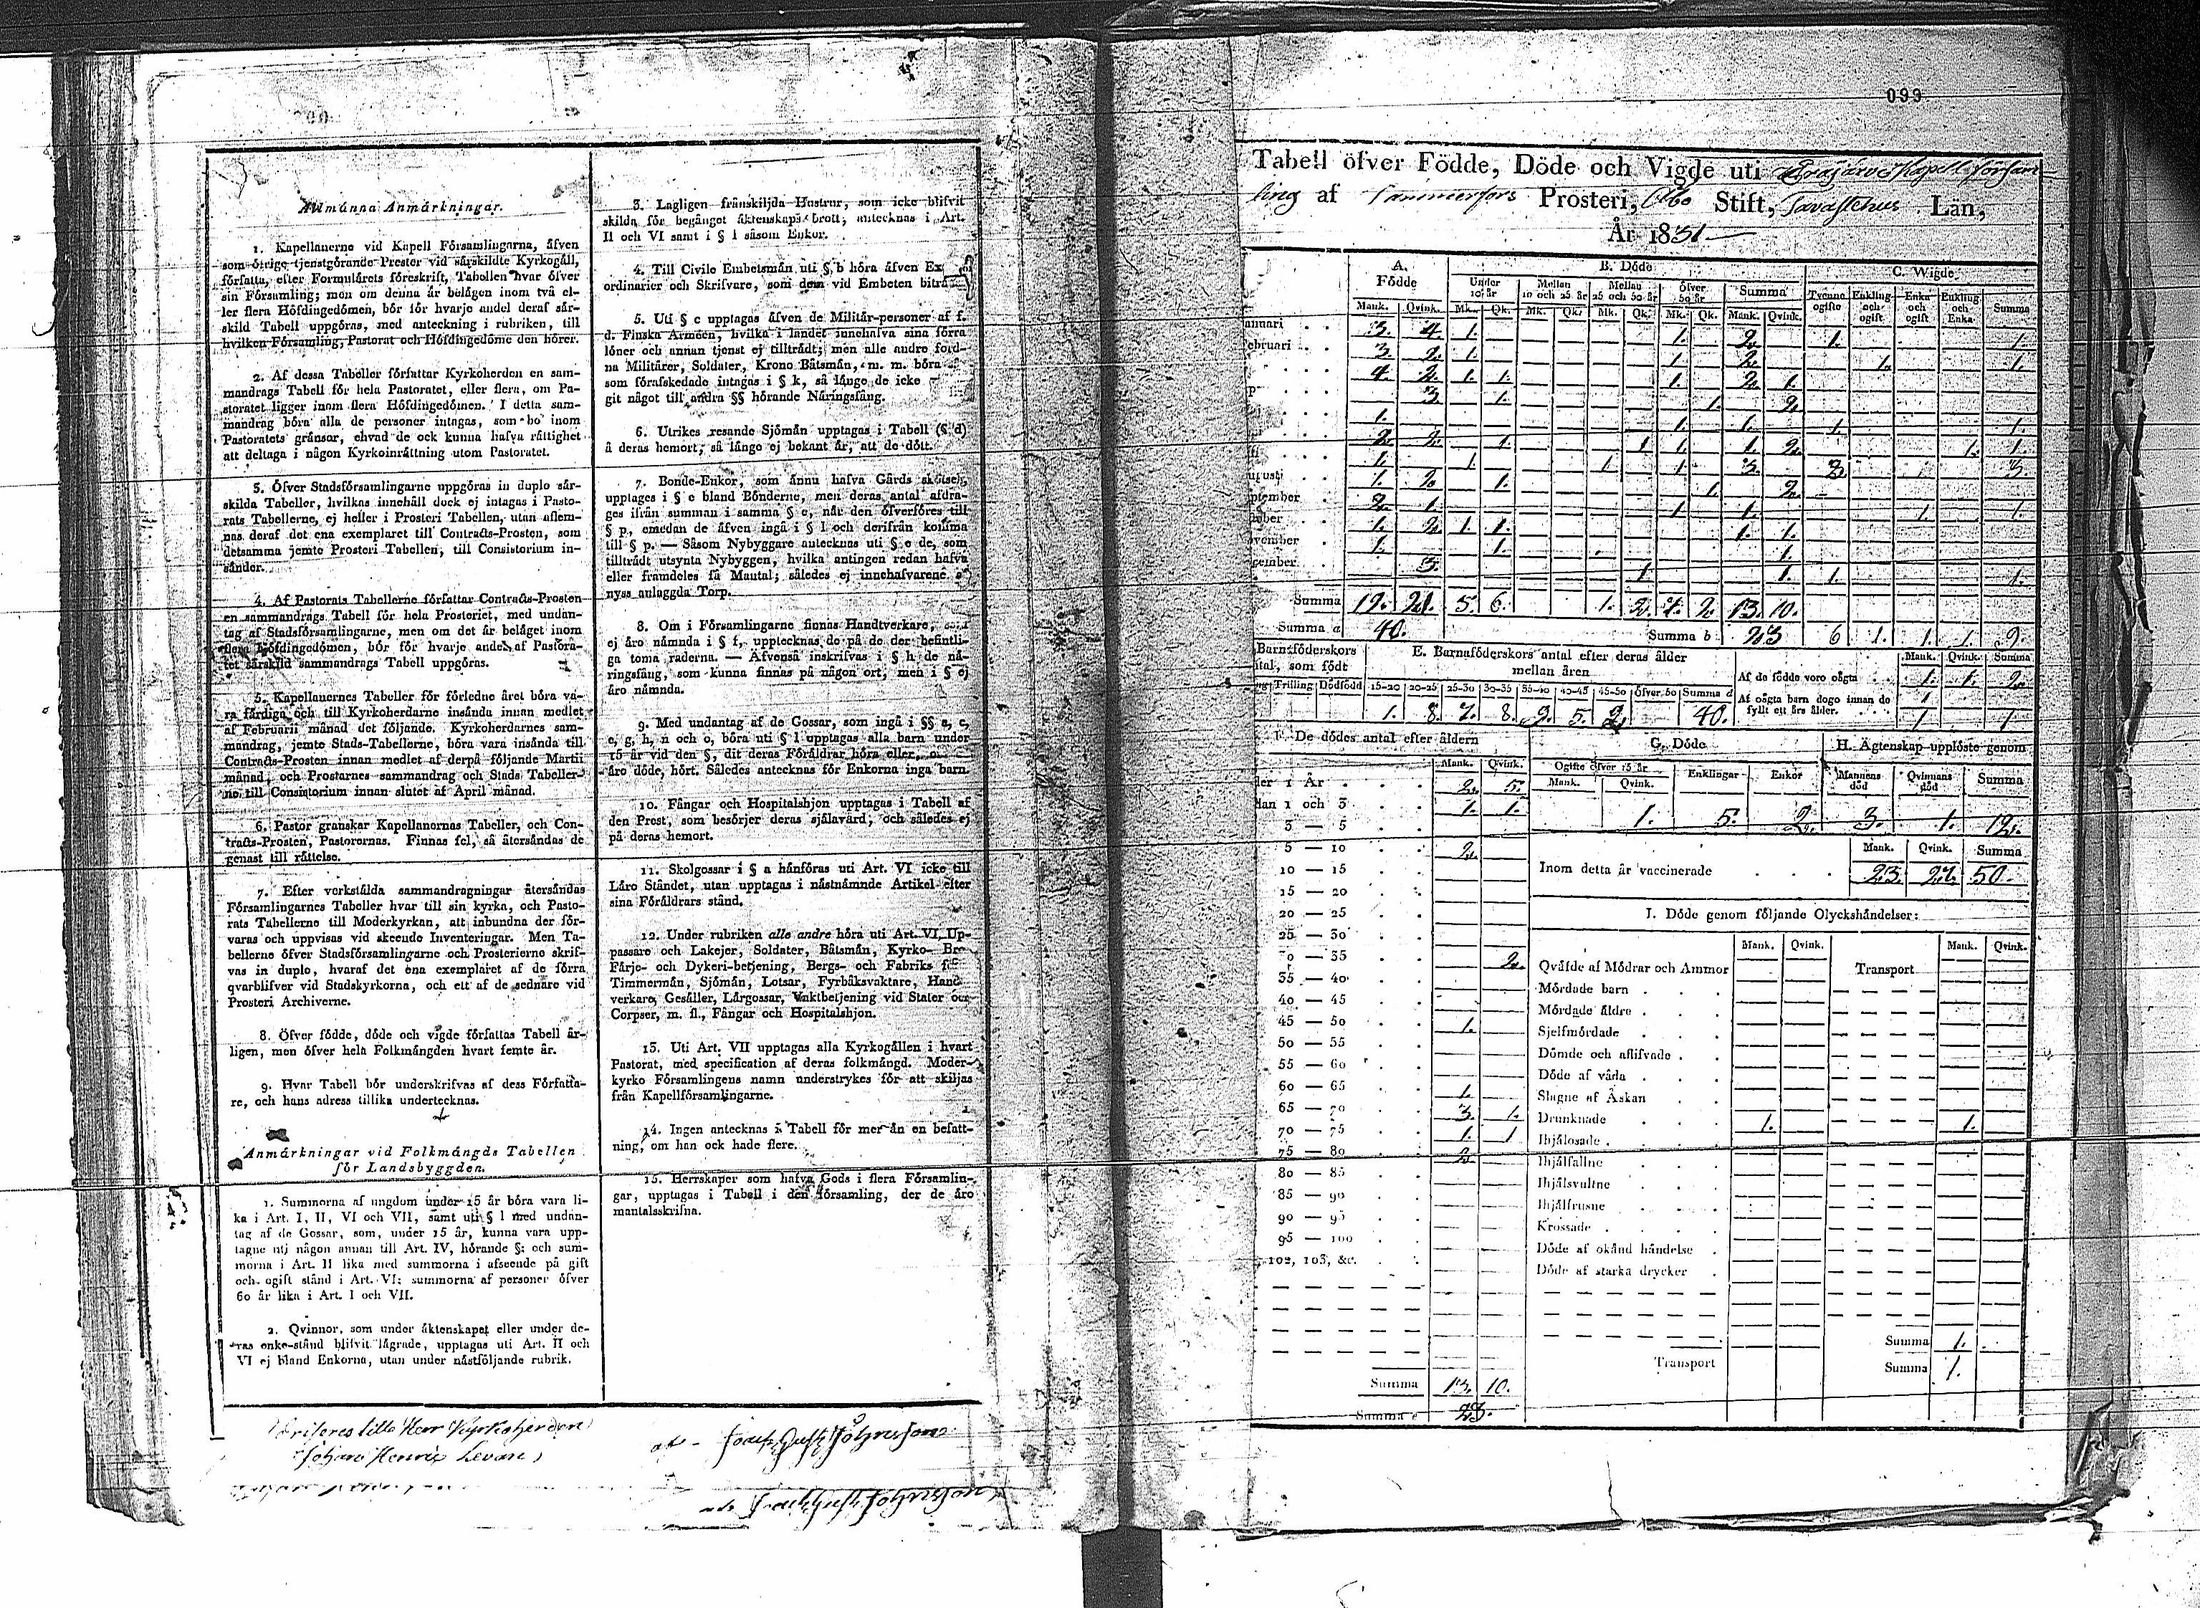 Allmänna Anmärkningar.
1. Kapellanerne vid Kapell Församlingarna, äfven
som öfrige tjenstgörande Prester vid särskildte Kyrkogäll,
författa, efter Formulärets föreskrift, Tabellen hvar öfver
sin Församling; men om denna är belägen inom två el-
ler flera Höfdingedömen, bör för hvarje andel deraf sär-
skild Tabell uppgöras, med anteckning i rubriken, till
hvilken Församling, Pastorat och Höfdingedöme den hörer.
2. Af dessa Tabeller författar Kyrkoherden en sam-
mandrags Tabell för hela Pastoratet, eller flera, om Pa-
storatet ligger inom flera Höfdingedömen. I detta sam-
mandrag böra alla de personer intagas, som bo inom
Pastoratets gränsor, ehvad de ock kunna hafva rättighet
att deltaga i någon Kyrkoinrättning utom Pastoratet.
3. Öfver Stadsförsamlingarne uppgöras in duplo sär-
skilda Tabeller, hvilkas innehåll dock ej intagas i Pasto-
rats Tabellerne, ej heller i Prosteri Tabellen, utan aflem-
nas deraf det ena exemplaret till Contracts-Prosten, som
detsamma jemte Prosteri Tabellen, till Consistorium in-
sänder.
4. Af Pastorats Tabellerne författar Contracts-Prosten
en sammandrags Tabell för hela Prosteriet, med undan-
tag af Stadsförsamlingarne, men om det är beläget inom
flera Höfdingedömen, bör för hvarje andel af Pastora-
tet särskild sammandrags Tabell uppgöras.
5. Kapellanernes Tabeller för förledne året böra va-
ra färdiga och till Kyrkoherdarne insända innan medlet
af Februarii månad det följande. Kyrkoherdarnes sam-
mandrag, jemte Stads-Tabellerne, böra vara insända till
Contracts-Prosten innan medlet af derpå följande Martii
månad, och Prostarnes sammandrag och Stads Tabeller-
ne till Consistorium innan slutet af April månad.
6. Pastor granskar Kapellanernas Tabeller, och Con-
tracts-Prosten, Pastorernas. Finnas fel, så återsändas de
genast till rättelse.
7. Efter verkstälda sammandragningar återsändas
Församlingarnes Tabeller hvar till sin kyrka, och Pasto-
rats Tabellerne till Moderkyrkan, att inbundna der för-
varas och uppvisas vid skeende Inventeringar. Men Ta-
bellerne öfver Stadsförsamlingarne och Prosterierne skrif-
vas in duplo, hvaraf det ena exemplaret af de förra
qvarblifver vid Stadskyrkorna, och ett af de sednare vid
Prosteri Archiverne.
8. Öfver födde, döde och vigde författas Tabell år-
ligen, men öfver hela Folkmängden hvart femte år.
9. Hvar Tabell bör underskrifvas af dess Författa-
re, och hans adress tillika undertecknas.
Anmärkningar vid Folkmängds Tabellen
för Landsbyggden.
1. Summorna af ungdom under 15 år böra vara li-
ka i Art. I, II, VI och VII, samt uti § l med undan-
tag af de Gossar, som, under 15 år, kunna vara upp-
tagne uti någon annan till Art. IV, hörande §: och sum-
morna i Art. II lika med summorna i afseende på gift
och ogift stånd i Art. VI: summorna af personer öfver
60 år lika i Art. I och VII.
2. Qvinnor, som under äktenskapet eller under de-
ras enke-stånd blifvit lägrade, upptagas uti Art. II och
VI ej bland Enkorna, utan under nästföljande rubrik.
3. Lagligen frånskiljda Hustrur, som icke blifvit
skilda för begånget äktenskaps brott, antecknas i Art.
II och VI samt i § l såsom Enkor.
4. Till Civile Embetsmän uti § b höra äfven Ex
ordinarier och Skrifvare, som dem vid Embeten biträ
5. Uti § c upptagas äfven de Militär-personer af f.
d. Finska Arméen, hvilka i landet innehafva sina förra
löner och annan tjenst ej tillträdt; men alle andre ford-
na Militärer, Soldater, Krono Båtsmän, m. m. böra
som förafskedade intagas i § k, så länge de icke
git något till andra §§ hörande Näringsfång.
6. Utrikes resande Sjömän upptagas i Tabell (§ d)
å deras hemort, så länge ej bekant är, att de dött.
7. Bonde-Enkor, som ännu hafva Gårds skötsel,
upptages i § e bland Bönderne, men deras antal afdra-
ges ifrån summan i samma § e, når den öfverföres till
§ p, emedan de äfven ingå i § l och derifrån komma
till § p. — Såsom Nybyggare antecknas uti § e de, som
tillträdt utsynta Nybyggen, hvilka antingen redan hafva
eller framdeles få Mantal; således ej innehafvarene
nyss anlaggda Torp.
8. Om i Församlingarne finnas Handtverkare,
ej äro nämnda i § f, upptecknas de på de der befintli-
ga toma raderna. — Äfvenså inskrifvas i § h de nä-
ringsfång, som kunna finnas på någon ort, men i § ej
äro nämnda.
9. Med undantag af de Gossar, som ingå i §§ a, c,
e, g, h, n och o, böra uti § l upptagas alla barn under
15 år vid den §, dit deras Föräldrar höra eller,
äro döde, hört. Således antecknas för Enkorna inga barn.
10. Fångar och Hospitalshjon upptagas i Tabell af
den Prest, som besörjer deras själavård, och således ej
på deras hemort.
11. Skolgossar i § a hänföras uti Art. VI icke till
Läro Ståndet, utan upptagas i nästnämnde Artikel efter
sina Föräldrars stånd.
12. Under rubriken alle andre höra uti Art. VI, Up-
passare och Lakejer, Soldater, Båtsmän, Kyrko- Bro
Färje- och Dykeri-betjening, Bergs- och Fabriks
Timmermän, Sjömän, Lotsar, Fyrbåksvaktare, Hand
verkare, Gesäller, Lärgossar, Vaktbetjening vid Stater och
Corpser, m. fl., Fångar och Hospitalshjon.
13. Uti Art. VII upptagas alla Kyrkogällen i hvart
Pastorat, med specification af deras folkmängd. Moder-
kyrko Församlingens namn understrykes för att skiljas
från Kapellförsamlingarne.
14. Ingen antecknas i Tabell för mer än en befatt-
ning, om han ock hade flere.
15. Herrskaper som hafva Gods i flera Församlin-
gar, upptagas i Tabell i den församling, der de äro
mantalsskrifna.
Herr Kyrkoherden
Johan Henric Levan
099
Tabell öfver Födde, Döde och Vigde uti Eräjärvi Kapell församl
ling af Tammerfors Prosteri, Åbo Stift, Tavastehus Län,
År 1831
A. Födde B. Döde C. Wigde
Under 10 år Mellan 10 och 25 år Mellan 25 och 50 år öfver 50 år Summa Tvenne ogifte Enkling och ogift Enka och ogift Enkling och Enka Summa
Mank. Qvink. Mk. Qk. Mk. Qk. Mk. Qk. Mk. Qk. Mank. Qvink.
anuari 3. 4. 1. 1. 2. 1. 1.
ebruari 3. 2. 1. 1. 2. 1. 1.
4. 2. 1. 1. 1. 2. 1.
3. 1. 1. 2.
1. 1. 1. 1. 1.
2. 2. 1. 1 1. 1. 2. 1. 1.
1. 1. 1. 1. 3. 3. 3.
ugusti 1. 2. 1. 1. 2.
ptember 2. 1. 1. 1. 1. 1.
ober 1. 2. 1. 1. 1. 1.
ovember 1. 1. 1.
cember 3. 1. 1. 1. 1.
Summa 19. 21. 5. 6. 1. 2. 7. 2. 13. 10.
Summa a 40. Summa b 23 6 1. 1. 1. 9.
Barnsföderskors
tal, som födt
Trilling Dödfödd
E. Barnsföderskors antal efter deras ålder
mellan åren
15-20 20-25 25-30 30-35 35-40 40-45 45-50 öfver 50 Summa d
1. 8. 7. 8. 9. 5. 2. 40.
Mank. Qvink. Summa
Af de födde voro oägta 1. 1. 2.
Af oägta barn dogo innan de
fyllt ett års ålder. 1 1
F. De dödes antal efter åldern
Mank. Qvink.
der 1 År 2. 5.
lan 1 och 3 1. 1.
3 — 5
5 — 10 2.
10 — 15
15 — 20
20 — 25
25 — 30
0 — 35 2.
35 — 40
40 — 45
45 — 50 1.
50 — 55
55 — 60
60 — 65 1.
65 — 70 3. 1.
70 — 75 1. 1
75 — 80 2
80 — 85
85 — 90
90 — 95
95 — 100
102, 103, &c.
Summa 13. 10.
Summa e 23.
G. Döde
Ogifte öfver 15 år Enklingar Enkor
Mank. Qvink.
1. 5. 2.
H. Ägtenskap upplöste genom
Mannens död Qvinnans död Summa
3. 1.
Mank. Qvink. Summa
Inom detta år vaccinerade 23. 27. 50.
I. Döde genom följande Olyckshändelser:
Mank. Qvink. Mank. Qvink.
Qväfde af Mödrar och Ammor Transport
Mördade barn
Mördade äldre
Sjelfmördade
Dömde och aflifvade
Döde af våda
Slagne af Åskan
Drunknade 1. 1.
Ihjälosade
Ihjälfallne
Ihjälsvultne
Ihjälfrusne
Krossade
Döde af okänd händelse
Döde af starka drycker
Summa 1.
Transport Summa 1.